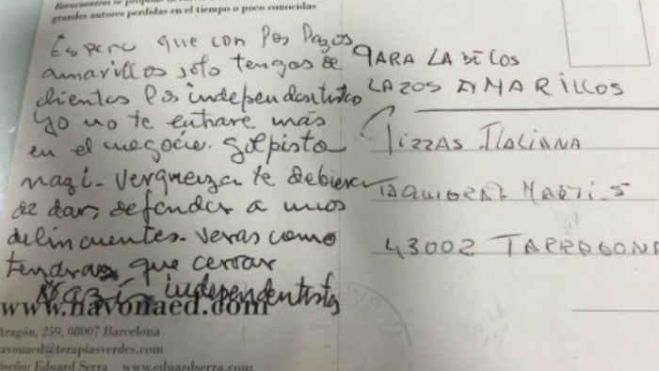 grandes autores perdidas en el tiempo o poco conocidas
Espero que con los lazos
amarillos solo tengas de
clientes los independentista
Yo no te entrare mas
en el negocio. golpista
nazi. Verguenza te debiera
de dar, defender a unos
delincuentes. Veras como
tendras que cerrar
Nazi independentista
www.navonaed.com
Aragón, 259, 08007 Barcelona
navonaed@terapiasverdes.com
Diseño: Eduard Serra www.eduardserra.com
PARA LA DE LOS
LAZOS AMARILLOS
PIZZAS ITALIANA
43002 TARRAGONA